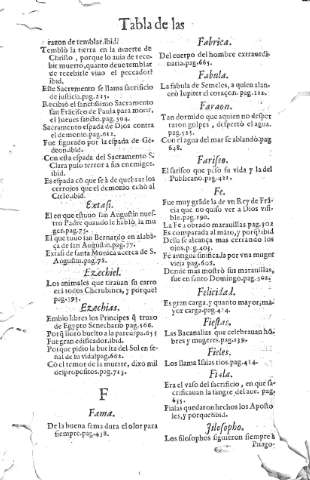 Tabla de las
razon de temblar. ibid.
Temblò la tierra en la muerte de
Christo, porque lo auia de rece-
bir muerto, quanto deue temblar
de recebirle viuo el peccador?
ibid.
Este Sacramento se llama sacrificio
de justicia. pag. 225.
Recibio el sanctissimo Sacramento
san Francisco de Paula para morir,
el Jueues sancto. pag. 504.
Sacramento espada de Dios contra
el demonio. pag. 612.
Fue figurado por la espada de Ge-
deon. ibid.
Con esta espada del Sacramento S.
Clara puso terror a sus enemigos.
ibid.
Es espada cõ que se à de quebrar los
cerrojos que el demonio echò al
Cielo. ibid.
Extasi.
El en que estuuo san Augustin nues-
tro Padre quando le hablò la ima-
gen. pag. 75.
El que tuuo san Bernardo en alaba-
ça de san Augustin. pag. 77.
Extasi de santa Monica acerca de S.
Augustin. pag. 78.
Ezechiel.
Los animales que tirauan su carro
era todos Cherubines, y porque?
pag. 193.
Ezechias.
Embiò libres los Principes q̃ truxo
de Egypto Senecherib pag. 506.
Porq̃ lloro buelto a la pared pa. 635
Fue gran edificador. ibid.
Porque pidio la buelta del Sol en se-
ñal de su vida. pag. 662.
Cõ el temor de la muerte, dixo mil
desproposìtos. pag. 723.
F
Fama.
De la buena fama dura el olor para
siempre. pag. 438.
Fabrica.
Del cuerpo del hombre extraordi-
naria. pag. 665.
Fabula.
La fabula de Semeles, a quien alan-
cò Iupiter el coraçon. pag. 122.
Faraon.
Tan dormido que aquien no desper
taron golpes, despertò el agua.
pag. 525.
Con el agua del mar se ablandò. pag
648.
Fariseo.
El fariseo que puso su vida y la del
Publicano. pag. 422.
Fe.
Fue muy grãde la de vn Rey de Frã-
cia que no quiso ver a Dios visi-
ble. pag. 190.
La Fe à obrado marauillas pag. 302
Es comparada al mãto, y porq̃? ibid
Della se alcança mas cerrando los
ojos. p. g. 405.
Fe antigua sinifica. la por vna muger
vieja pag. 605.
Donde mas mostrò sus marauillas,
fue en santo Domingo. pag. 302.
Felicidad.
Es gran carga, y quanto mayor, ma-
yor carga. pag. 424.
Fiestas.
Las Bacanalias que celebrauan hõ-
bres y mugeres. pag. 139.
Fieles.
Los llama Isaias rios. pag. 424.
Fiala.
Era el vaso del sacrificio, en que sa-
crificauan la sangre del auer. pag.
635.
Fialas quedaron hechos los Aposto
les, y porque? ibid.
Filosopho.
Los filosophos siguieron siempre à
Pitago-